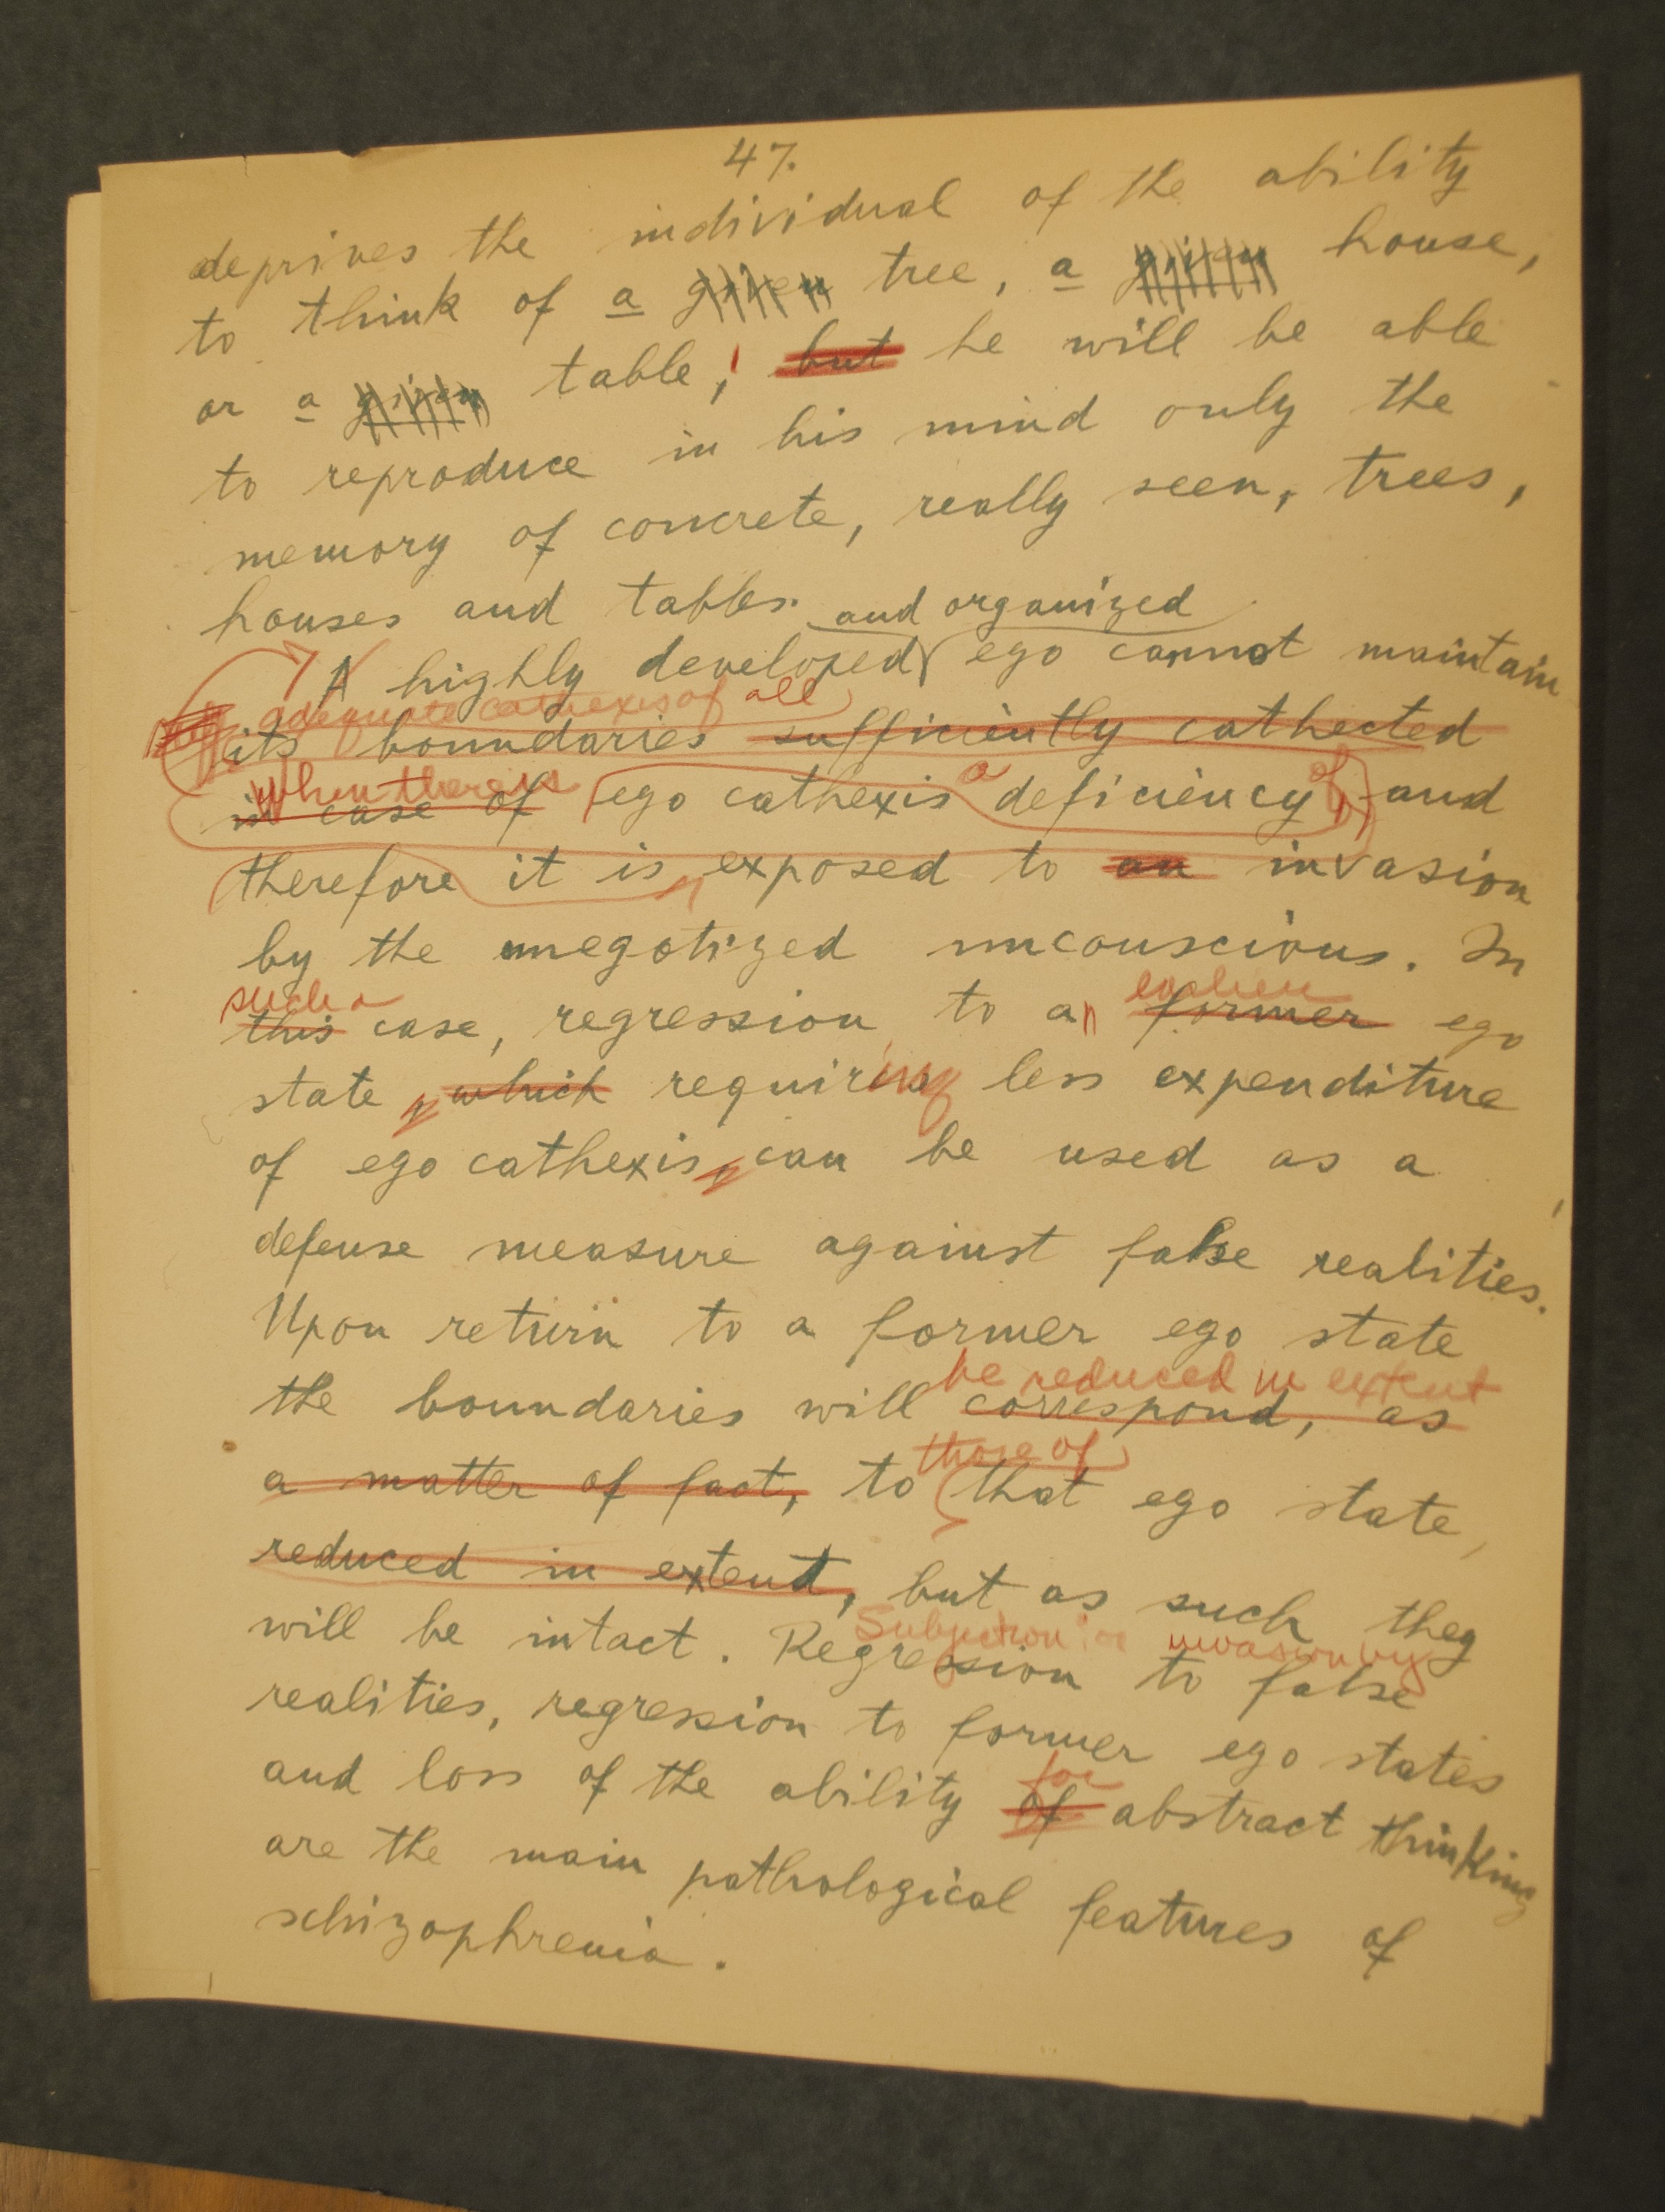 47.
deprives the individual of the ability
to think of a given tree, a given house,
or a given table; but he will be able
to reproduce in his mind only the
memory of concrete, really seen, trees,
houses and tables.
and organized
A highly developed ego cannot maintain
adequate cathexis of all
its boundaries sufficiently cathected
When there is
in case of ego cathexis a deficiency of, and
therefore it is, exposed to an invasion
by the unegotized unconscious. In
such a
earlier
this case, regression to an former ego
state, which requiring less expenditure
of ego cathexis, can be used as a
defense measure against false realities.
Upon return to a former ego state
be reduced in extent
the boundaries will correspond, as
those of
a matter of fact, to that ego state,
reduced in extent, but as such they
will be intact. Regression to false
Subjection to invasion by
realities, regression to former ego states
for
and loss of the ability of abstract thinking
are the main pathological features of
schizophrenia.